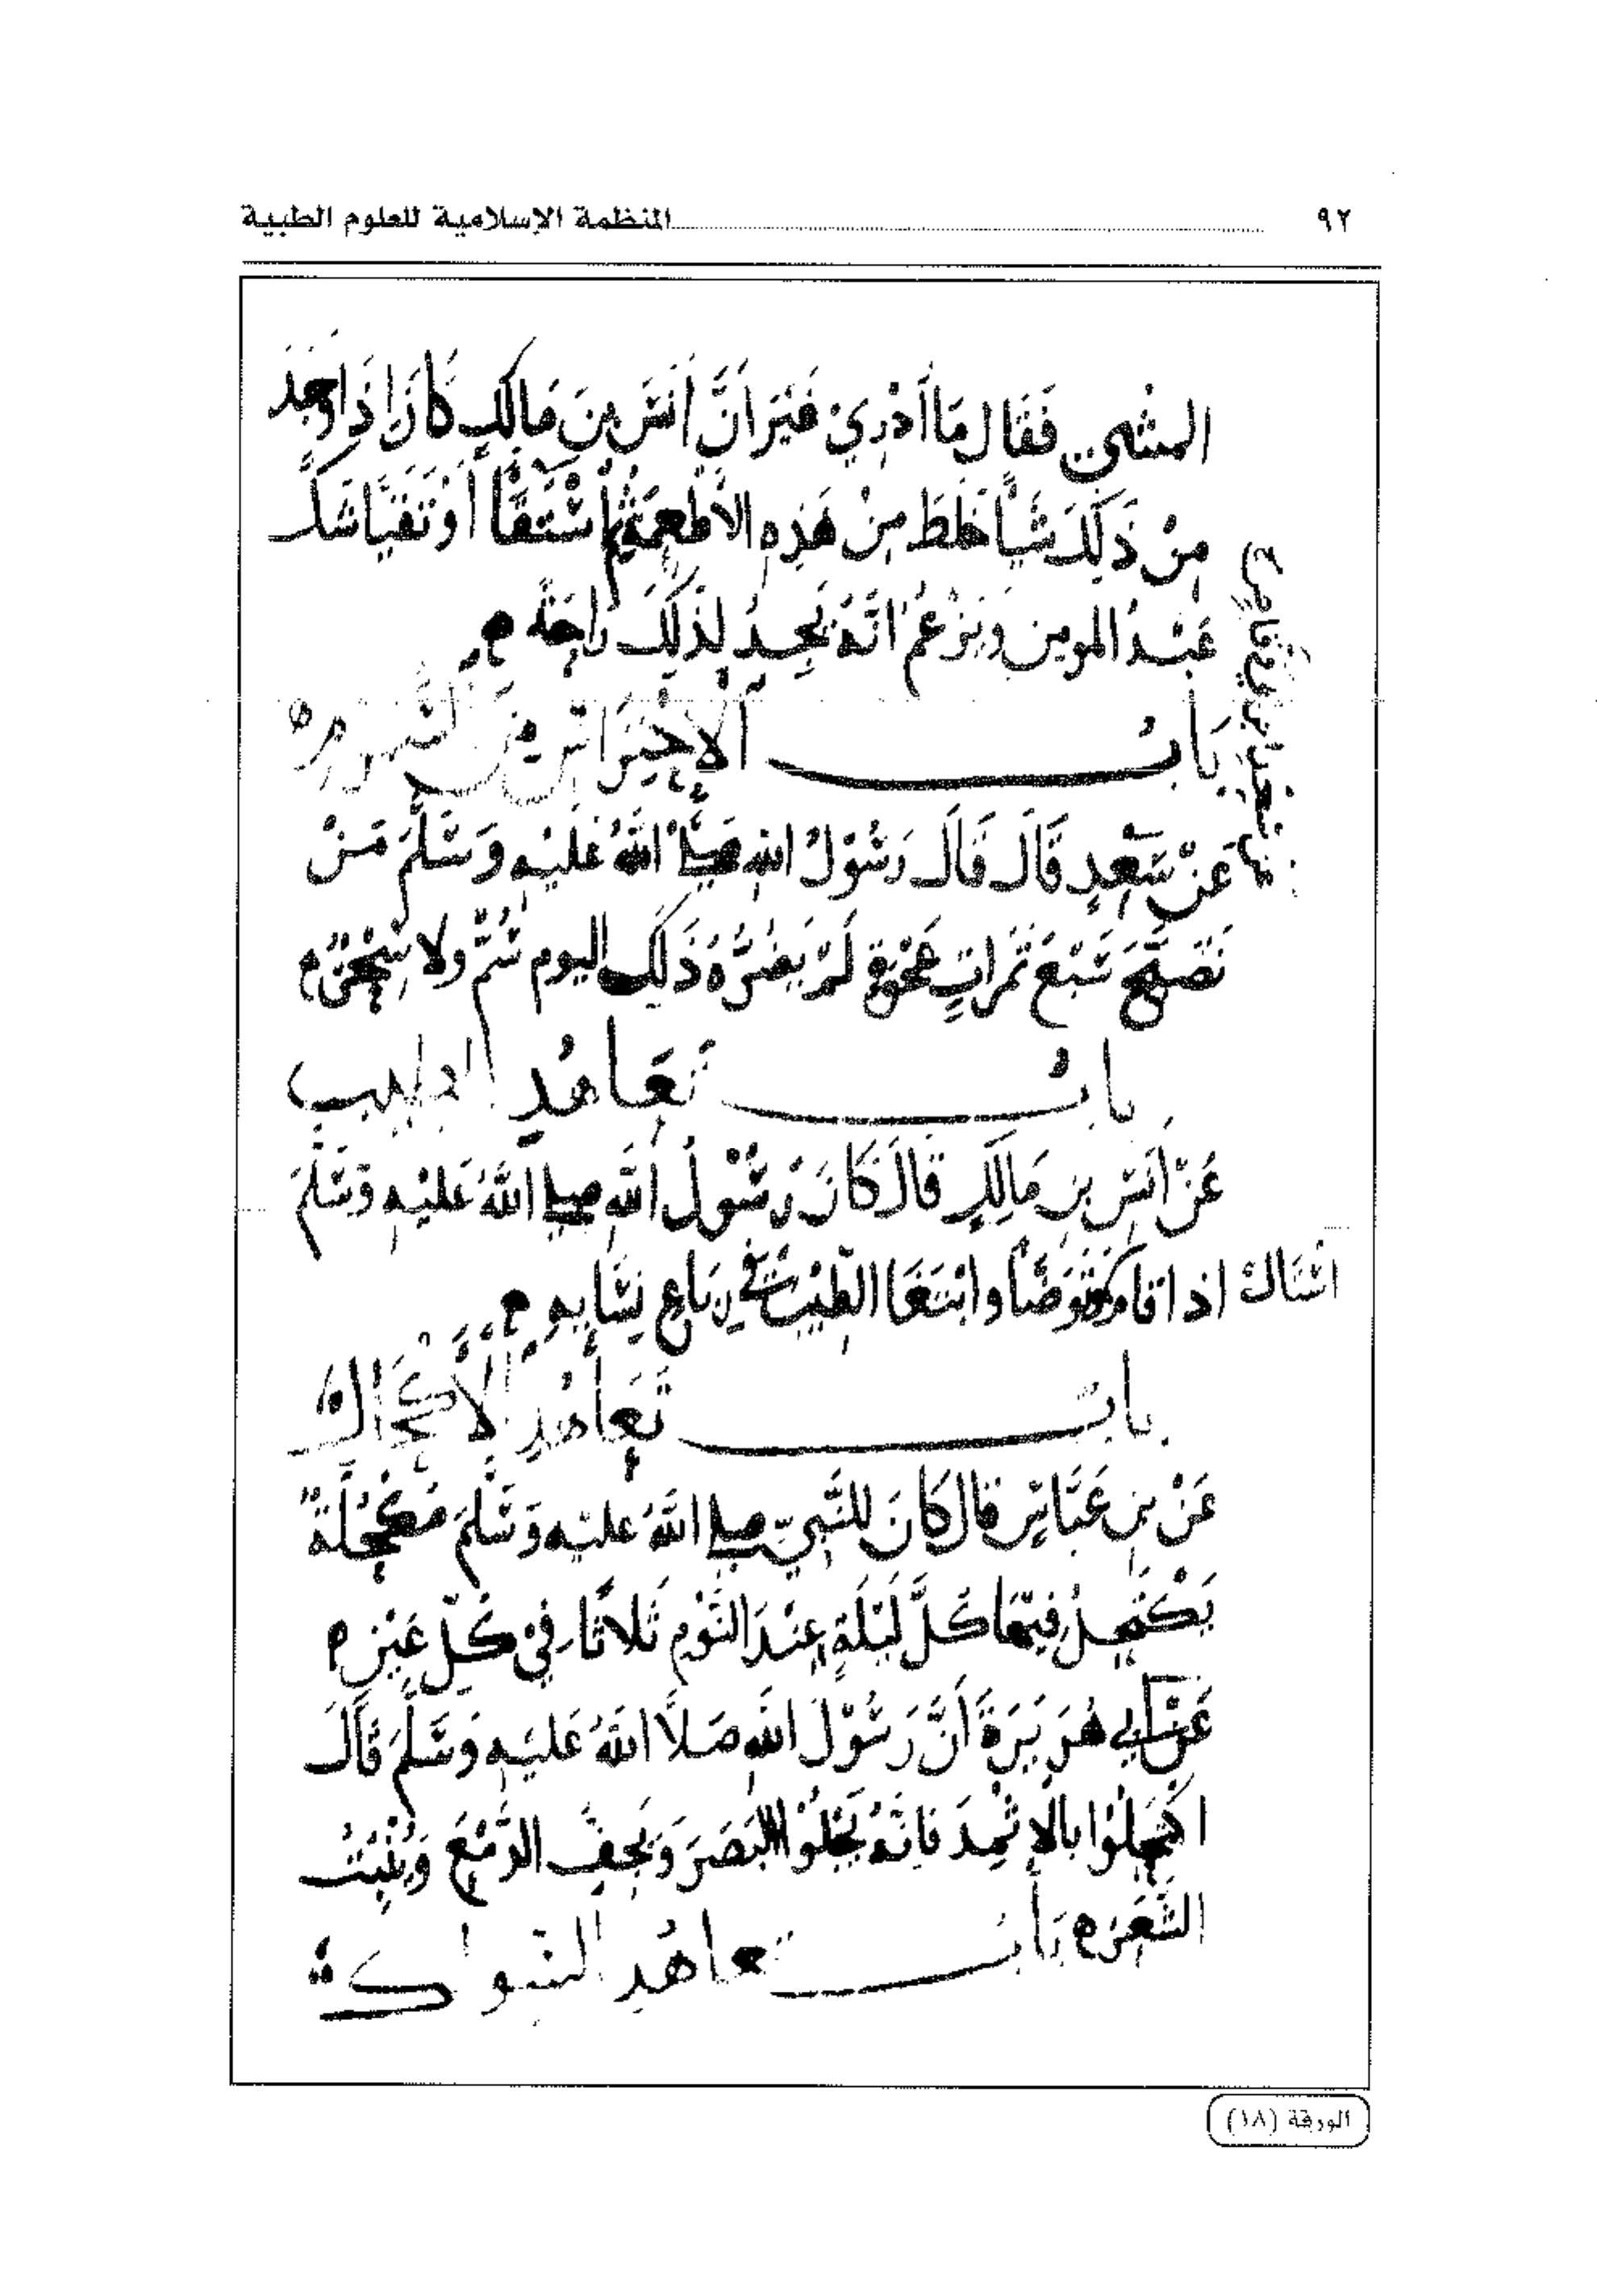 ٩٢ المنظمة الإسلامية للعلوم الطبية
المشي فَقَال مَا أَدْرِي غَيْرَ انَّ أَنَسَ بنَ مَالِكٍ كَانَ اذَا وَجَدَ
مِنْ ذَلِكَ شَيْأً خَلَطَ مِنْ هَذِهِ الأَطْعِمَةِ ثُمَّ اسْتَقَّأ أَوْ تَقَيَّأ شَكَّ
عَبْدُ المومن وَيَزْعُمُ انَّهُ يَجِدُ لِذَلِكَ رَاحَةً
بَابُ الإِحْتِرَاسِ مِنَ السُّمُومِ
عَنْ سَعْدٍ قَالَ قَالَ رَسُوْلُ اللهِ صَلَّى اللهُ عَلَيْهِ وَسَلَّمَ مَنْ
تَصَبَّحَ سَبْعَ تَمَرَاتٍ عَجْوَةٍ لَمْ يَضُرَّهُ ذَلِكَ اليوم سُمٌّ ولا سِحْرٌ
بابُ تَعَاهُدِ الطيب
عَنْ أَنَسِ بنِ مَالِكٍ قَالَ كَانَ رَسُوْلُ اللهِ صلى اللهُ عَلَيْهِ وَسَلَّمَ
اسْتَاكَ وَتَوَضَّأ وابْتَغَا الطِّيْبَ في رِبَاعِ نِسَايه
بابُ تَعَاهُدِ الأكحَال
عَنْ بنِ عَبَّاسٍ قال كَانَ للنَّبِيِّ صلى اللهُ عليه وَسَلَّمَ مُكْحُلَةٌ
يَكْتَحِلُ فِيْهَا كُلَّ لَيْلَةٍ عِنْدَ النَّوْمِ ثَلاثًا فِيْ كُلِّ عَيْنٍ
عَنْ أبي هُرَيْرَةَ أَنَّ رَسُوْلَ اللهِ صَلَّا اللهُ عَلَيْهِ وَسَلَّمَ قَالَ
اكْتَحِلُوْا بالإِثْمِدَ فَانَّهُ يَجْلُوْا البَصَرَ وَيُجِفُّ الدَّمْعَ وَيُنْبِتُ
الشَّعَرَ بَابُ تعاهُدِ السواك
الورقة (١٨)